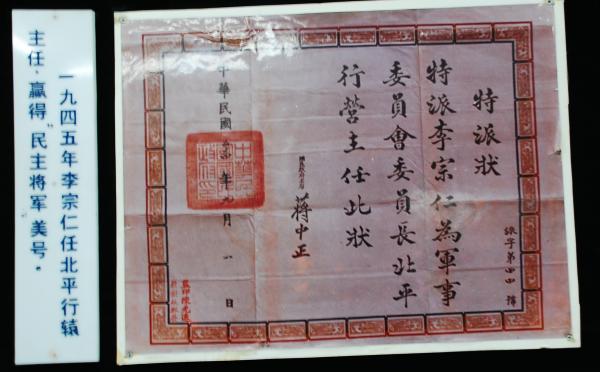 一九四五年李宗仁任北平行辕
主任，赢得“民主将军”美号。
特派状
特派李宗仁為軍事
委員會委員長北平
行營主任此狀
國民政府主席
蔣中正
中華民國
年九月
日